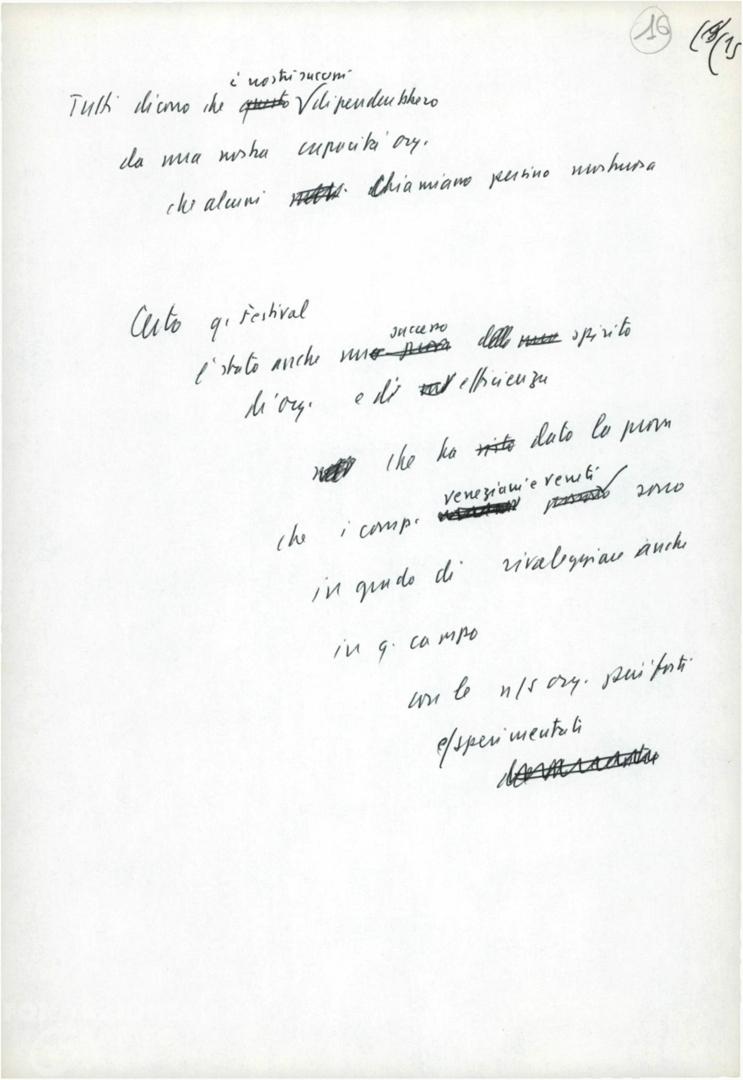 16 15
i nostri successi
Tutti dicono che questo dipenderebbero
da una nostra capacità org.
che alcuni chiamiano persino mostruosa
Certo q. Festival
è stato anche un successo dello spirito
di org. e di efficienza
che ha visto dato la prova
veneziani e veneti
che i comp. sono
in grado di rivaleggiare anche
in q. campo
con le n/s org. più forti
e/sperimentati